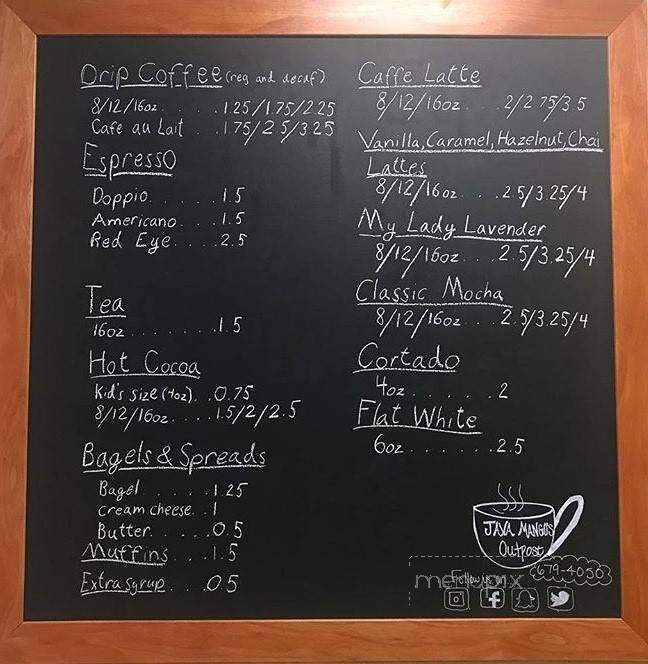 Drip Coffee (reg and decaf)
8/12/16oz......1.25/1.75/2.25
Cafe au Lait..1.75/2.5/3.25
Espresso
Doppio......1.5
Americano....1.5
Red Eye.....2.5
Tea
16oz.......1.5
Hot Cocoa
Kid's size (4oz)..0.75
8/12/16oz....1.5/2/2.5
Bagels & Spreads
Bagel......1.25
cream cheese..1
Butter.....0.5
Muffins....1.5
Extra syrup...0.5
Caffe Latte
8/12/16oz...2/2.75/3.5
Vanilla, Caramel, Hazelnut, Chai
Lattes
8/12/16oz....2.5/3.25/4
My Lady Lavender
8/12/16oz...2.5/3.25/4
Classic Mocha
8/12/16oz....2.5/3.25/4
Cortado
4oz......2
Flat White
6oz......2.5
JAVA MANGOS
Outpost
679-4050
Follow us on